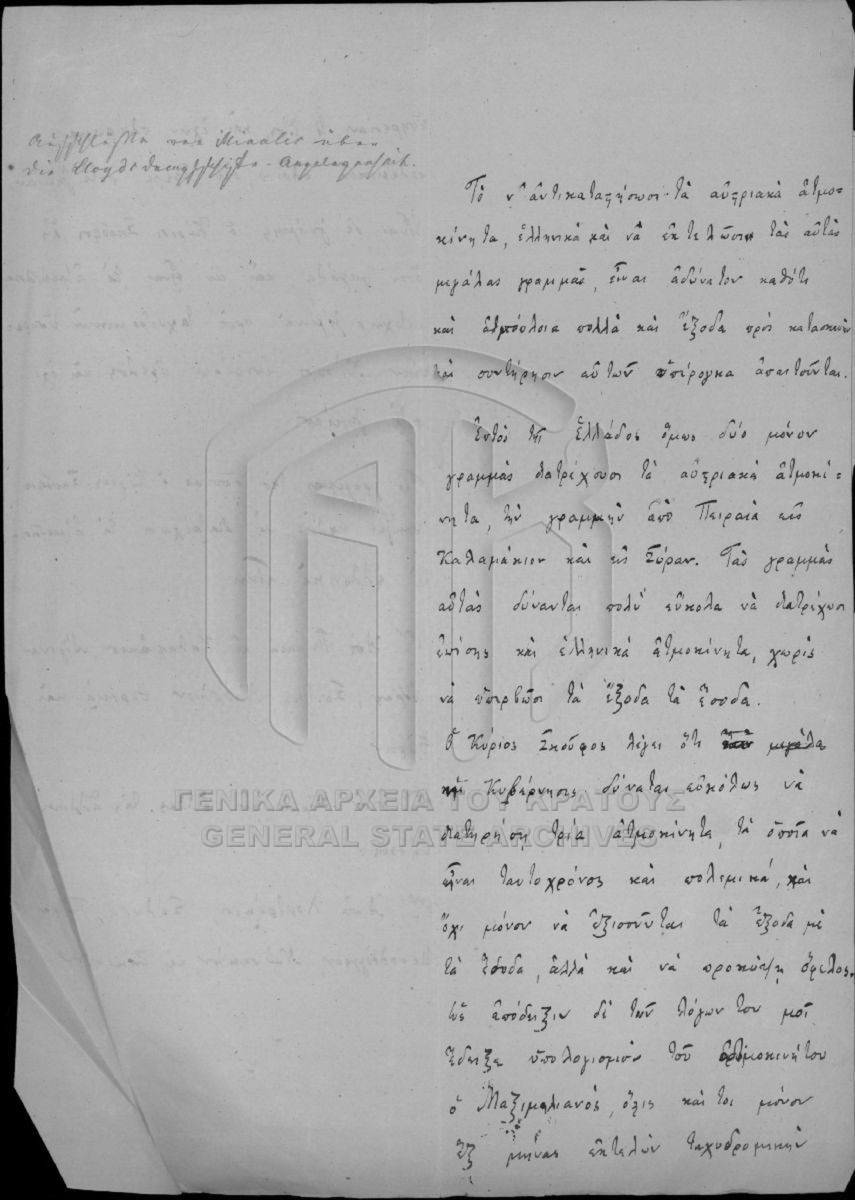 Aufschlüsse von Miaulis über
die Lloyds Dampfschiffs-Angelegenheit.
Τὸ ν' ἀντικαταστήσωσι τὰ αὐστριακὰ ἀτμο-
κίνητα, ἑλληνικὰ καὶ νὰ ἐκτελῶσι τὰς αὐτὰς
μεγάλας γραμμὰς, εἶναι ἀδύνατον καθότι
καὶ ἀτμόπλοια πολλὰ καὶ ἔξοδα πρὸς κατασκευὴν
καὶ συντήρησιν αὐτῶν ὑπέρογκα ἀπαιτοῦνται.
Ἐντὸς τῆς Ἑλλάδος ὅμως δύο μόνον
γραμμὰς διατρέχουσι τὰ αὐστριακὰ ἀτμοκί-
νητα, τὴν γραμμὴν ἀπὸ Πειραιᾶ εἰς
Καλαμάκιον καὶ εἰς Σύραν. Τὰς γραμμὰς
αὐτὰς δύνανται πολὺ εὔκολα νὰ διατρέχωσι
ἐπίσης καὶ ἑλληνικὰ ἀτμοκίνητα, χωρὶς
νὰ ὑπερβῶσι τὰ ἔξοδα τὰ ἔσοδα.
Ὁ Κύριος Σκοῦφος λέγει ὅτι
Κυβέρνησις δύναται εὐκόλως νὰ
διατηρήσῃ τρία ἀτμοκίνητα, τὰ ὁποῖα νὰ
εἶναι ταυτοχρόνως καὶ πολεμικά, καὶ
ὄχι μόνον νὰ ἐξισοῦνται τὰ ἔξοδα μὲ
τὰ ἔσοδα, ἀλλὰ καὶ νὰ προκύψῃ ὄφελος.
Εἰς ἀπόδειξιν δὲ τῶν λόγων του μοὶ
ἔδειξε ὑπολογισμὸν τοῦ ἀτμοκινήτου
ὁ Μαξιμιλιανὸς, ὅστις καίτοι μόνον
ἓξ μῆνας ἐκτελῶν ταχυδρομικὴν
ΓΕΝΙΚΑ ΑΡΧΕΙΑ ΤΟΥ ΚΡΑΤΟΥΣ
GENERAL STATE ARCHIVES